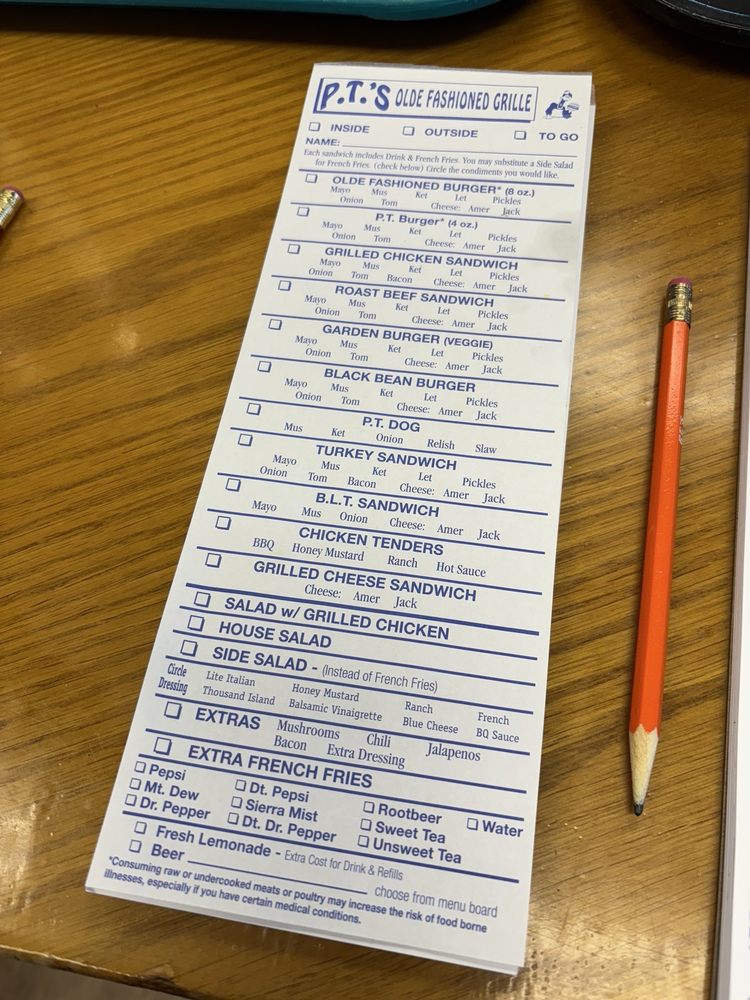 P.T.'S OLDE FASHIONED GRILLE
❏ INSIDE ❏ OUTSIDE ❏ TO GO
NAME:
Each sandwich includes Drink & French Fries. You may substitute a Side Salad
for French Fries. (check below) Circle the condiments you would like.
❏ OLDE FASHIONED BURGER* (8 oz.)
Mayo Mus Ket Let Pickles
Onion Tom Cheese: Amer Jack
❏ P.T. Burger* (4 oz.)
Mayo Mus Ket Let Pickles
Onion Tom Cheese: Amer Jack
❏ GRILLED CHICKEN SANDWICH
Mayo Mus Ket Let Pickles
Onion Tom Bacon Cheese: Amer Jack
❏ ROAST BEEF SANDWICH
Mayo Mus Ket Let Pickles
Onion Tom Cheese: Amer Jack
❏ GARDEN BURGER (VEGGIE)
Mayo Mus Ket Let Pickles
Onion Tom Cheese: Amer Jack
❏ BLACK BEAN BURGER
Mayo Mus Ket Let Pickles
Onion Tom Cheese: Amer Jack
❏ P.T. DOG
Mus Ket Onion Relish Slaw
❏ TURKEY SANDWICH
Mayo Mus Ket Let Pickles
Onion Tom Bacon Cheese: Amer Jack
❏ B.L.T. SANDWICH
Mayo Mus Onion Cheese: Amer Jack
❏ CHICKEN TENDERS
BBQ Honey Mustard Ranch Hot Sauce
❏ GRILLED CHEESE SANDWICH
Cheese: Amer Jack
❏ SALAD w/ GRILLED CHICKEN
❏ HOUSE SALAD
❏ SIDE SALAD - (Instead of French Fries)
Circle Lite Italian Honey Mustard Ranch French
Dressing Thousand Island Balsamic Vinaigrette Blue Cheese BQ Sauce
❏ EXTRAS Mushrooms Chili Jalapenos
Bacon Extra Dressing
❏ EXTRA FRENCH FRIES
❏ Pepsi ❏ Dt. Pepsi ❏ Rootbeer ❏ Water
❏ Mt. Dew ❏ Sierra Mist ❏ Sweet Tea
❏ Dr. Pepper ❏ Dt. Dr. Pepper ❏ Unsweet Tea
❏ Fresh Lemonade - Extra Cost for Drink & Refills
❏ Beer choose from menu board
*Consuming raw or undercooked meats or poultry may increase the risk of food borne
illnesses, especially if you have certain medical conditions.